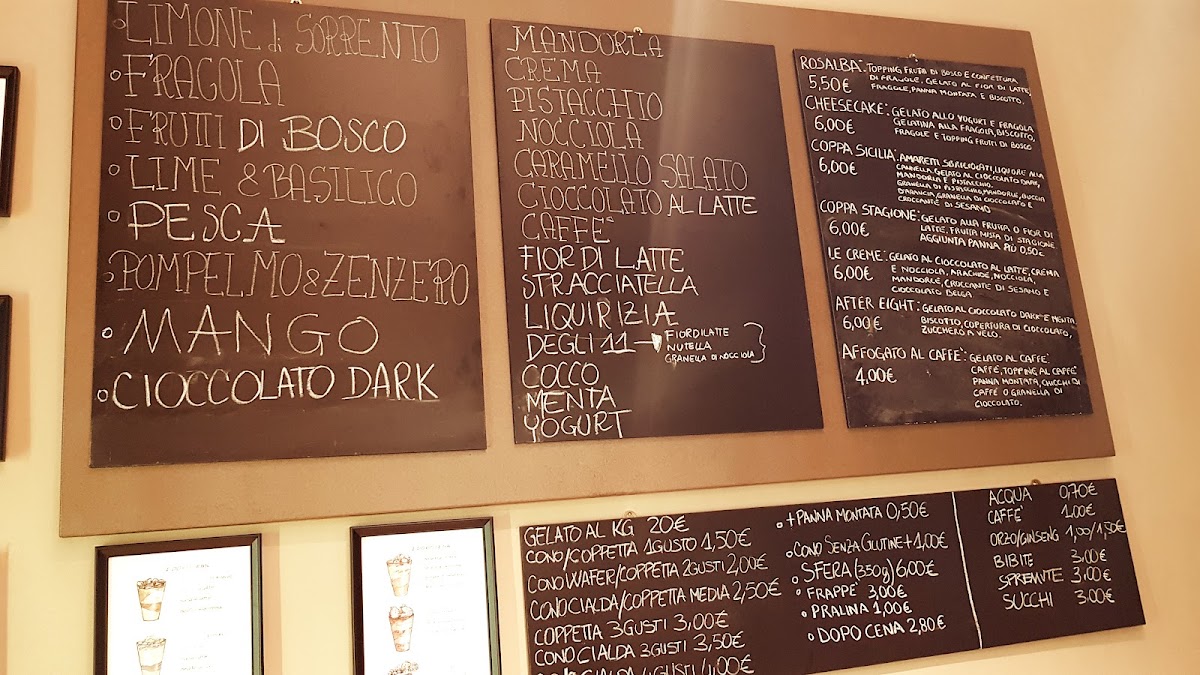 LIMONE di SORRENTO
FRAGOLA
FRUTI DI BOSCO
LIME & BASILICO
PESCA
POMPELMO & ZENZERO
MANGO
CIOCCOLATO DARK
MANDORLA
CREMA
PISTACCHIO
NOCCIOLA
CARAMELLO SALATO
CIOCCOLATO AL LATTE
CAFFE'
FIOR DI LATTE
STRACCIATELLA
LIQUIRIZIA
DEGLI 11 → FIORDILATTE
NUTELLA
GRANELLA DI NOCCIOLA
COCCO
MENTA
YOGURT
ROSALBA: TOPPING FRUTTI DI BOSCO E CONFETTURA
DI FRAGOLE, GELATO AL FIOR DI LATTE,
5,50€ FRAGOLE, PANNA MONTATA E BISCOTTO.
CHEESECAKE: GELATO ALLO YOGURT E FRAGOLA
6,00€ GELATINA ALLA FRAGOLA, BISCOTTO,
FRAGOLE E TOPPING FRUTTI DI BOSCO
COPPA SICILIA: AMARETTI SBRICIOLATI, LIQUORE ALLA
6,00€ CANNELLA, GELATO AL CIOCCOLATO DARK,
MANDORLA E PISTACCHIO.
GRANELLA DI PISTACCHIO, MANDORLE, BUCCIA
D'ARANCIA, GRANELLA DI CIOCCOLATO E
CROCCANTE DI SESAMO
COPPA STAGIONE: GELATO ALLA FRUTTA O FIOR DI
6,00€ LATTE, FRUTTA MISTA DI STAGIONE
AGGIUNTA PANNA PIÙ 0,50€
LE CREME: GELATO AL CIOCCOLATO AL LATTE, CREMA
6,00€ E NOCCIOLA, ARACHIDE, NOCCIOLA,
MANDORLE, CROCCANTE DI SESAMO E
CIOCCOLATO BELGA
AFTER EIGHT: GELATO AL CIOCCOLATO DARK E MENTA
6,00€ BISCOTTO, COPERTURA DI CIOCCOLATO,
ZUCCHERO A VELO.
AFFOGATO AL CAFFE': GELATO AL CAFFE'
4,00€ CAFFE', TOPPING AL CAFFE'
PANNA MONTATA, CHICCHI DI
CAFFE' O GRANELLA DI
CIOCCOLATO.
GELATO AL KG 20€
CONO/COPPETTA 1 GUSTO 1,50€
CONO WAFER/COPPETTA 2 GUSTI 2,00€
CONO CIALDA/COPPETTA MEDIA 2,50€
COPPETTA 3 GUSTI 3,00€
CONO CIALDA 3 GUSTI 3,50€
CIALDA 4 GUSTI 4,00€
+ PANNA MONTATA 0,50€
CONO SENZA GLUTINE + 1,00€
SFERA (350g) 6,00€
FRAPPE' 3,00€
PRALINA 1,00€
DOPO CENA 2,80€
ACQUA 0,70€
CAFFE' 1,00€
ORZO/GINSENG 1,00/1,50€
BIBITE 3,00€
SPREMUTE 3,00€
SUCCHI 3,00€